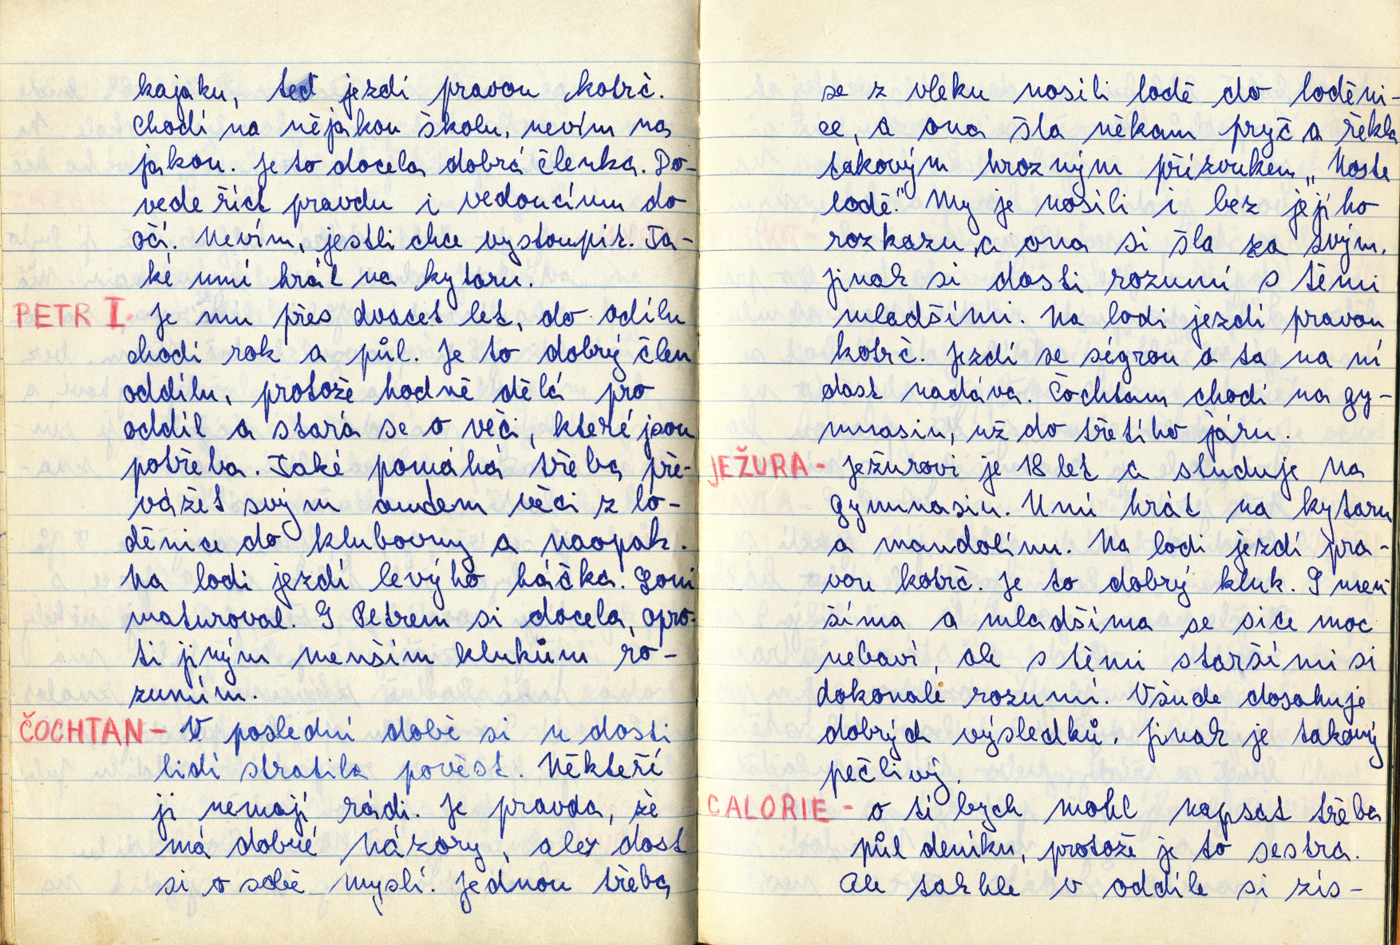 kajaku, teď jezdí pravou kobrč.
Chodí na nějakou školu, nevím na
jakou. Je to docela dobrá členka. Do-
vede říct pravdu i vedoucímu do
očí. Nevím, jestli chce vystoupit. Ta-
ké umí hrát na kytaru.
PETR I. Je mu přes dvacet let, do oddílu
chodí rok a půl. Je to dobrý člen
oddílu, protože hodně dělá pro
oddíl a stará se o věci, které jsou
potřeba. Také pomáhá třeba pře-
vážet svým audem věci z lo-
děnice do klubovny a naopak.
Na lodi jezdí levýho háčka. Loni
maturoval. S Petrem si docela, opro-
ti jiným menším klukům ro-
zumím.
ČOCHTAN - V poslední době si u dosti
lidí stratila pověst. Někteří
ji nemají rádi. Je pravda, že
má dobré názory, ale dost
si o sobě myslí. Jednou třeba
se z vleku nosili lodě do loděni-
ce, a ona šla někam pryč a řekla
takovým hrozným přízvukem „Noste
lodě." My je nosili i bez jejího
rozkazu a ona si šla za svým.
Jinak si dosti rozumí s těmi
mladšími. Na lodi jezdí pravou
kobrč. Jezdí se segrou a ta na ní
dost nadává. Čochtam chodí na gy-
mnasiu, už do třetího járu.
JEŽURA - Ježurovi je 18 let a studuje na
gymnasiu. Umí hrát na kytaru
a mandolínu. Na lodi jezdí pra-
vou kobrč. Je to dobrý kluk. S men
šíma a mladšíma se sice moc
nebaví, ale s těmi staršími si
dokonale rozumí. Všude dosahuje
dobrých výsledků. Jinak je takový
pečlivý.
CALORIE - o tí bych mohl napsat třeba
půl deníku, protože je to sestra.
Ale takhle v oddíle si zís-